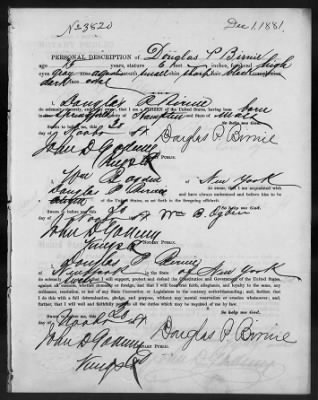 No 3820 Dec 1. 1881.
PERSONAL DESCRIPTION of Douglas P Birnie
age stature 6 feet inches, forehead high
eyes gray mouth small chin sharp hair black
dark oval
I, Douglas P. Birnie
do swear that I am a CITIZEN of the United States, having been born
in Springfield Hampden and State of Mass
So help me God.
Sworn to before me, this 30
day of
Douglas P. Birnie
John D Godwin
NOTARY PUBLIC.
Kings
I, Wm B. Ogden of New York
do swear, that I am acquainted with
Douglas P Birnie and have always understood and believe him to be
of the United States, as set forth in the foregoing affidavit.
So help me God.
Sworn to before me this 30
day of Wm B. Ogden
John D Godwin
NOTARY PUBLIC.
Kings
I, Douglas P. Birnie
of New York in the State of New York
do swear that I will support, protect and defend the Constitution and Government of the United States,
against all enemies, whether domestic or foreign, and that I will bear true faith, allegiance, and loyalty to the same, any
ordinance, resolution or law of any State Convention or Legislature to the contrary notwithstanding; and, further, that
I do this with a full determination, pledge, and purpose, without any mental reservation or evasion whatsoever; and,
further, that I will well and faithfully perform all the duties which may be required of me by law.
So help me God.
Sworn to before me, this 30
day of
Douglas P. Birnie
John D Godwin
NOTARY PUBLIC.
Kings